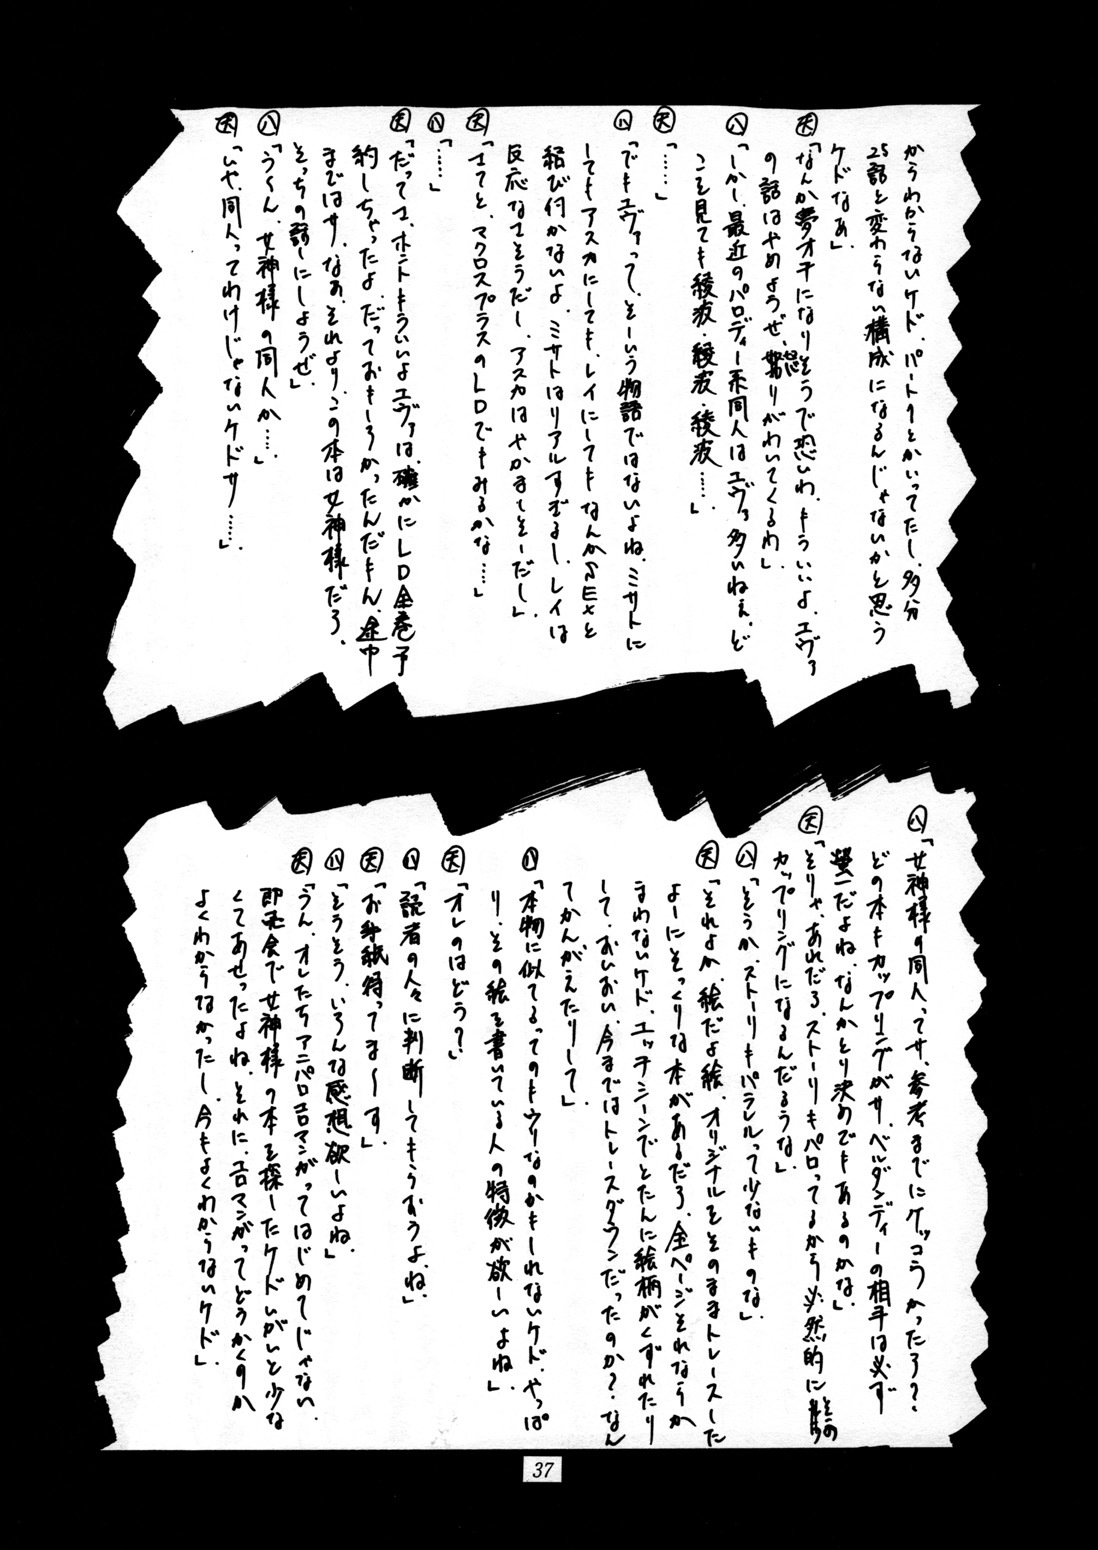 からわからないケド、パート1とかいってたし、多分
25話と変わらない構成になるんじゃないかと思う
ケドなぁ」
天「なんか夢オチになりそうで恐いわ、もういいよ、エヴァ
の話はやめようぜ、怒りがわいてくるわ」
八「しかし、最近のパロディー系同人はエヴァ多いねぇ、ど
こを見ても綾波、綾波、綾波……」
天「……」
八「でもエヴァって、そーいう物語ではないよね、ミサトに
してもアスカにしても、レイにしてもなんかSEXと
結び付かないよ、ミサトはリアルすぎるし、レイは
反応なさそうだし、アスカはやかましそーだし」
天「さてと、マクロスプラスのLDでもみるかな……」
八「……」
天「だってさ、ホントもういいよエヴァは、確かにLD全巻予
約しちゃったよ、だっておもしろかったんだもん、途中
まではサ、なぁ、それより、この本は女神様だろ、
そっちの話しにしようぜ」
八「う〜ん、女神様の同人か……」
天「いや、同人ってわけじゃないケドサ……」
八「女神様の同人ってサ、参考までにケッコうかったろ?
どの本もカップリングがサ、ベルダンディーの相手は必ず
螢一だよね、なんかとり決めでもあるのかな」
天「そりゃ、あれだろ、ストーリもパロってるから必然的にその
カップリングになるんだろうな」
八「そうか、ストーリもパラレルって少ないものな」
天「それよか、絵だよ絵、オリジナルをそのままトレースした
よーにそっくりな本があるだろ、全ページそれならか
まわないケド、エッチシーンでとたんに絵柄がくずれたり
して、おいおい、今まではトレースダウンだったのか?なん
てかんがえたりして」
八「本物に似てるってのもウリなのかもしれないケド、やっぱ
り、その絵を書いている人の特徴が欲しいよね」
天「オレのはどう?」
八「読者の人々に判断してもらおうよね」
天「お手紙待ってま〜す」
八「そうそう、いろんな感想欲しいよね」
天「うん、オレたちアニパロエロマンがってはじめてじゃない、
即売会で女神様の本を探したケドいがいと少な
くてあせったよね、それに、エロマンがってどうかくのか
よくわからなかったし、今もよくわからないケド」
37